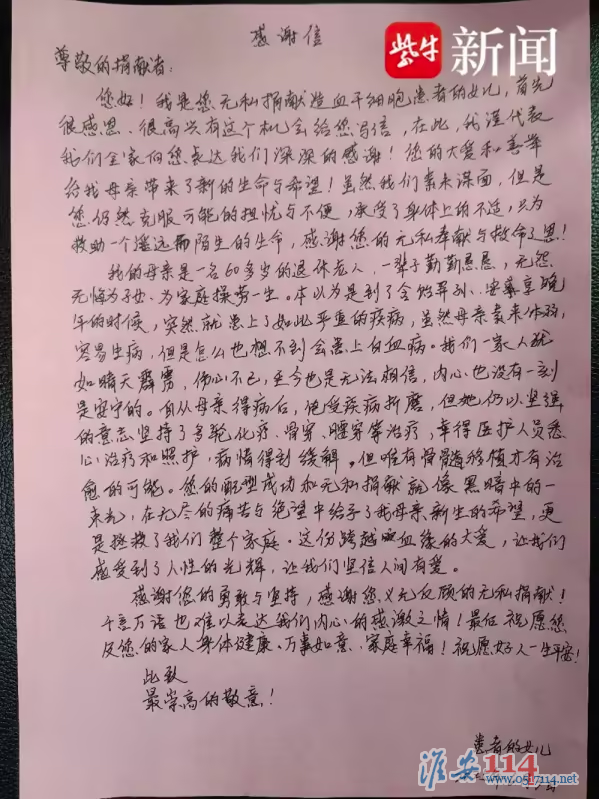 紫牛新闻
感谢信
尊敬的捐献者：
您好！我是您无私捐献造血干细胞患者的女儿，首先
很感恩、很高兴有这个机会给您写信，在此，我谨代表
我们全家向您表达我们深深的感谢！您的大爱和善举
给我母亲带来了新的生命与希望！虽然我们素未谋面，但是
您仍然克服可能的担忧与不便，承受了身体上的不适，只为
救助一个遥远而陌生的生命，感谢您的无私奉献与救命之恩！
我的母亲是一名60多岁的退休老人，一辈子勤勤恳恳，无怨
无悔为子女、为家庭操劳一生。本以为是到了含饴弄孙、安享晚
年的时候，突然就患上了如此严重的疾病，虽然母亲素来体弱，
容易生病，但是怎么也想不到会患上白血病。我们一家人犹
如晴天霹雳，伤心不已，至今也是无法相信，内心也没有一刻
是安宁的。自从母亲得病后，饱受疾病折磨，但她仍以坚强
的意志坚持了多轮化疗、骨穿、腰穿等治疗，幸得医护人员悉
心治疗和照护，病情得到缓解。但唯有骨髓移植才有治
愈的可能。您的配型成功和无私捐献就像黑暗中的一
束光，在无尽的痛苦与绝望中给予了我母亲新生的希望，更
是拯救了我们整个家庭。这份跨越血缘的大爱，让我们
感受到了人性的光辉，让我们坚信人间有爱。
感谢您的勇敢与坚持，感谢您义无反顾的无私捐献！
千言万语也难以表达我们内心的感激之情！最后祝愿您
及您的家人身体健康、万事如意、家庭幸福！祝愿好人一生平安！
此致
最崇高的敬意！
患者的女儿
淮安114
www.0517114.net